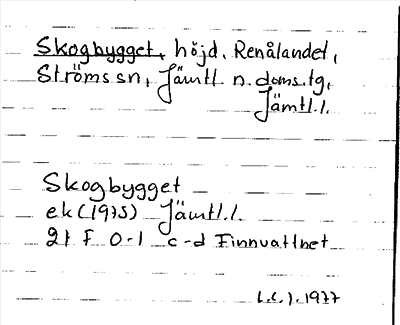 Skogbygget, höjd. Renålandet,
Ströms sn, Jämtl. n. doms. tg,
Jämtl. l.
Skogbygget
ek (1975) Jämtl. l.
21 F 0-1 c-d Finnvattnet
1977